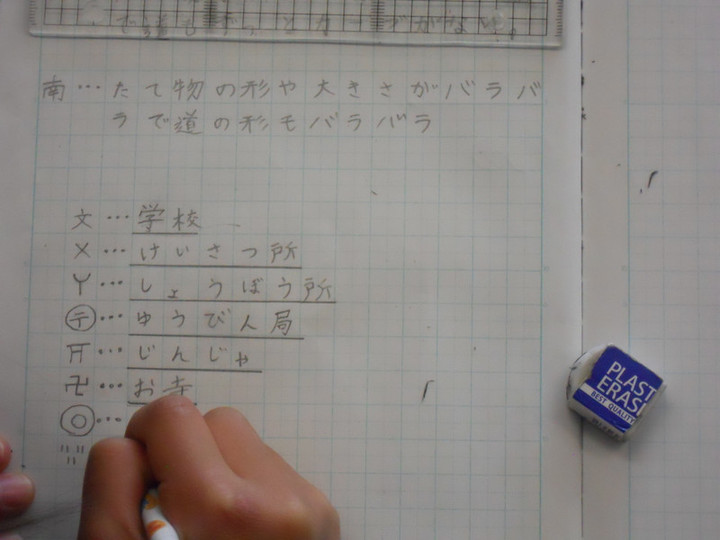 南…たて物の形や大きさがバラバ
ラで道の形モバラバラ
文…学校
X…けいさつ所
Y…しょうぼう所
〒…ゆうびん局
⛩…じんじゃ
卍…お寺
◎…
PLAST
ERAS
BEST QUALITY